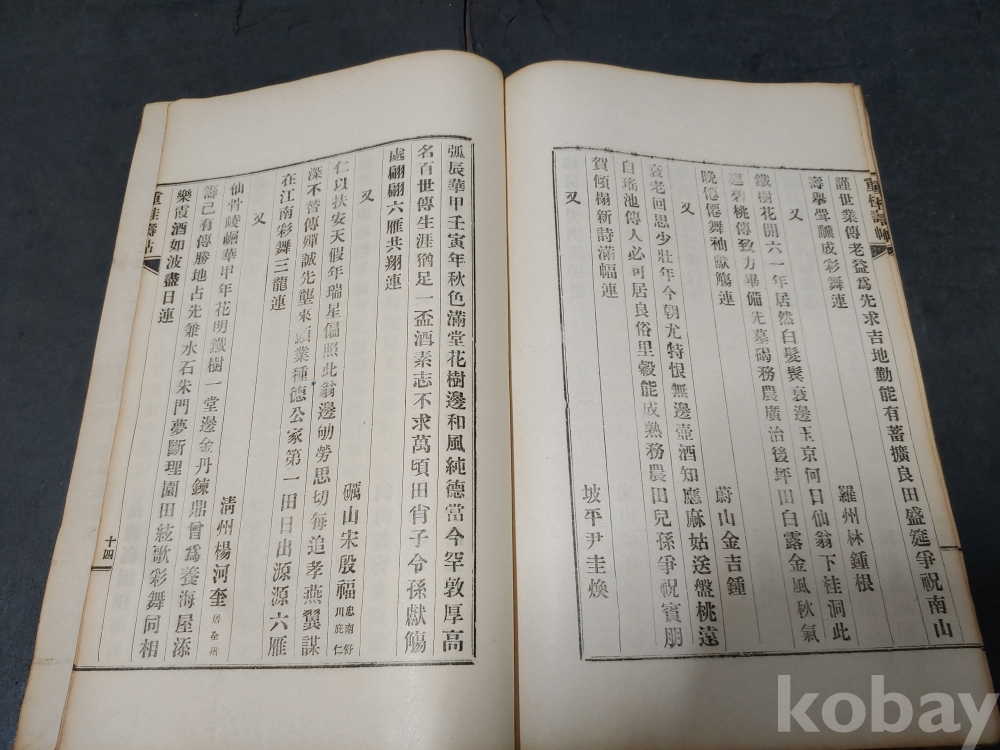 謹世業傳老益爲先求吉地勤能有蓄擴良田盛筵爭祝南山
壽擧聲聽成彩舞連 羅州林鍾根
又
鐵樹花開六一年居然白髮鬂衰邊玉京何日仙翁下桂洞此
筵碧桃傳致力畢備先墓碣務農廣治後坪田白露金風秋氣
晩僊僊舞袖獻觴連 蔚山金吉鍾
又
衰老回思少壯年今朝尤特恨無邊壺酒知應麻姑送盤桃遠
自瑤池傳人必可居良俗里穀能成熟務農田兒孫爭祝賓朋
賀傾榻新詩滿幅連 坡平尹圭煥
又
弧辰華甲壬寅年秋色滿堂花樹邊和風純德當今罕敦厚高
名百世傳生涯猶足一盃酒素志不求萬頃田肖子令孫獻觴
處翩翩六雁共翔連 礪山宋殷福 忠南舒川庇仁
又
仁以扶安天假年瑞星偏照此翁邊劬勞思切每追孝燕翼謀
深不啻傳殫誠先壟來頭業種德公家第一田日出源源六雁
在江南彩舞三龍連 淸州楊河奎 居全州
又
仙骨崚嶒華甲年花明鐵樹一堂邊金丹鍊鼎曾爲養海屋添
籌己有傳勝地占先兼水石朱門夢斷理園田絃歌彩舞同相
樂霞酒如波盡日連
重桂壽帖
十四
kobay